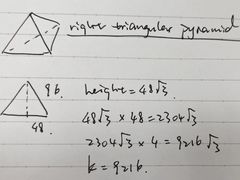 right triangular pyramid
96
height = 48√3
48
48√3 × 48 = 2304√3
2304√3 × 4 = 9216√3
k = 9216.